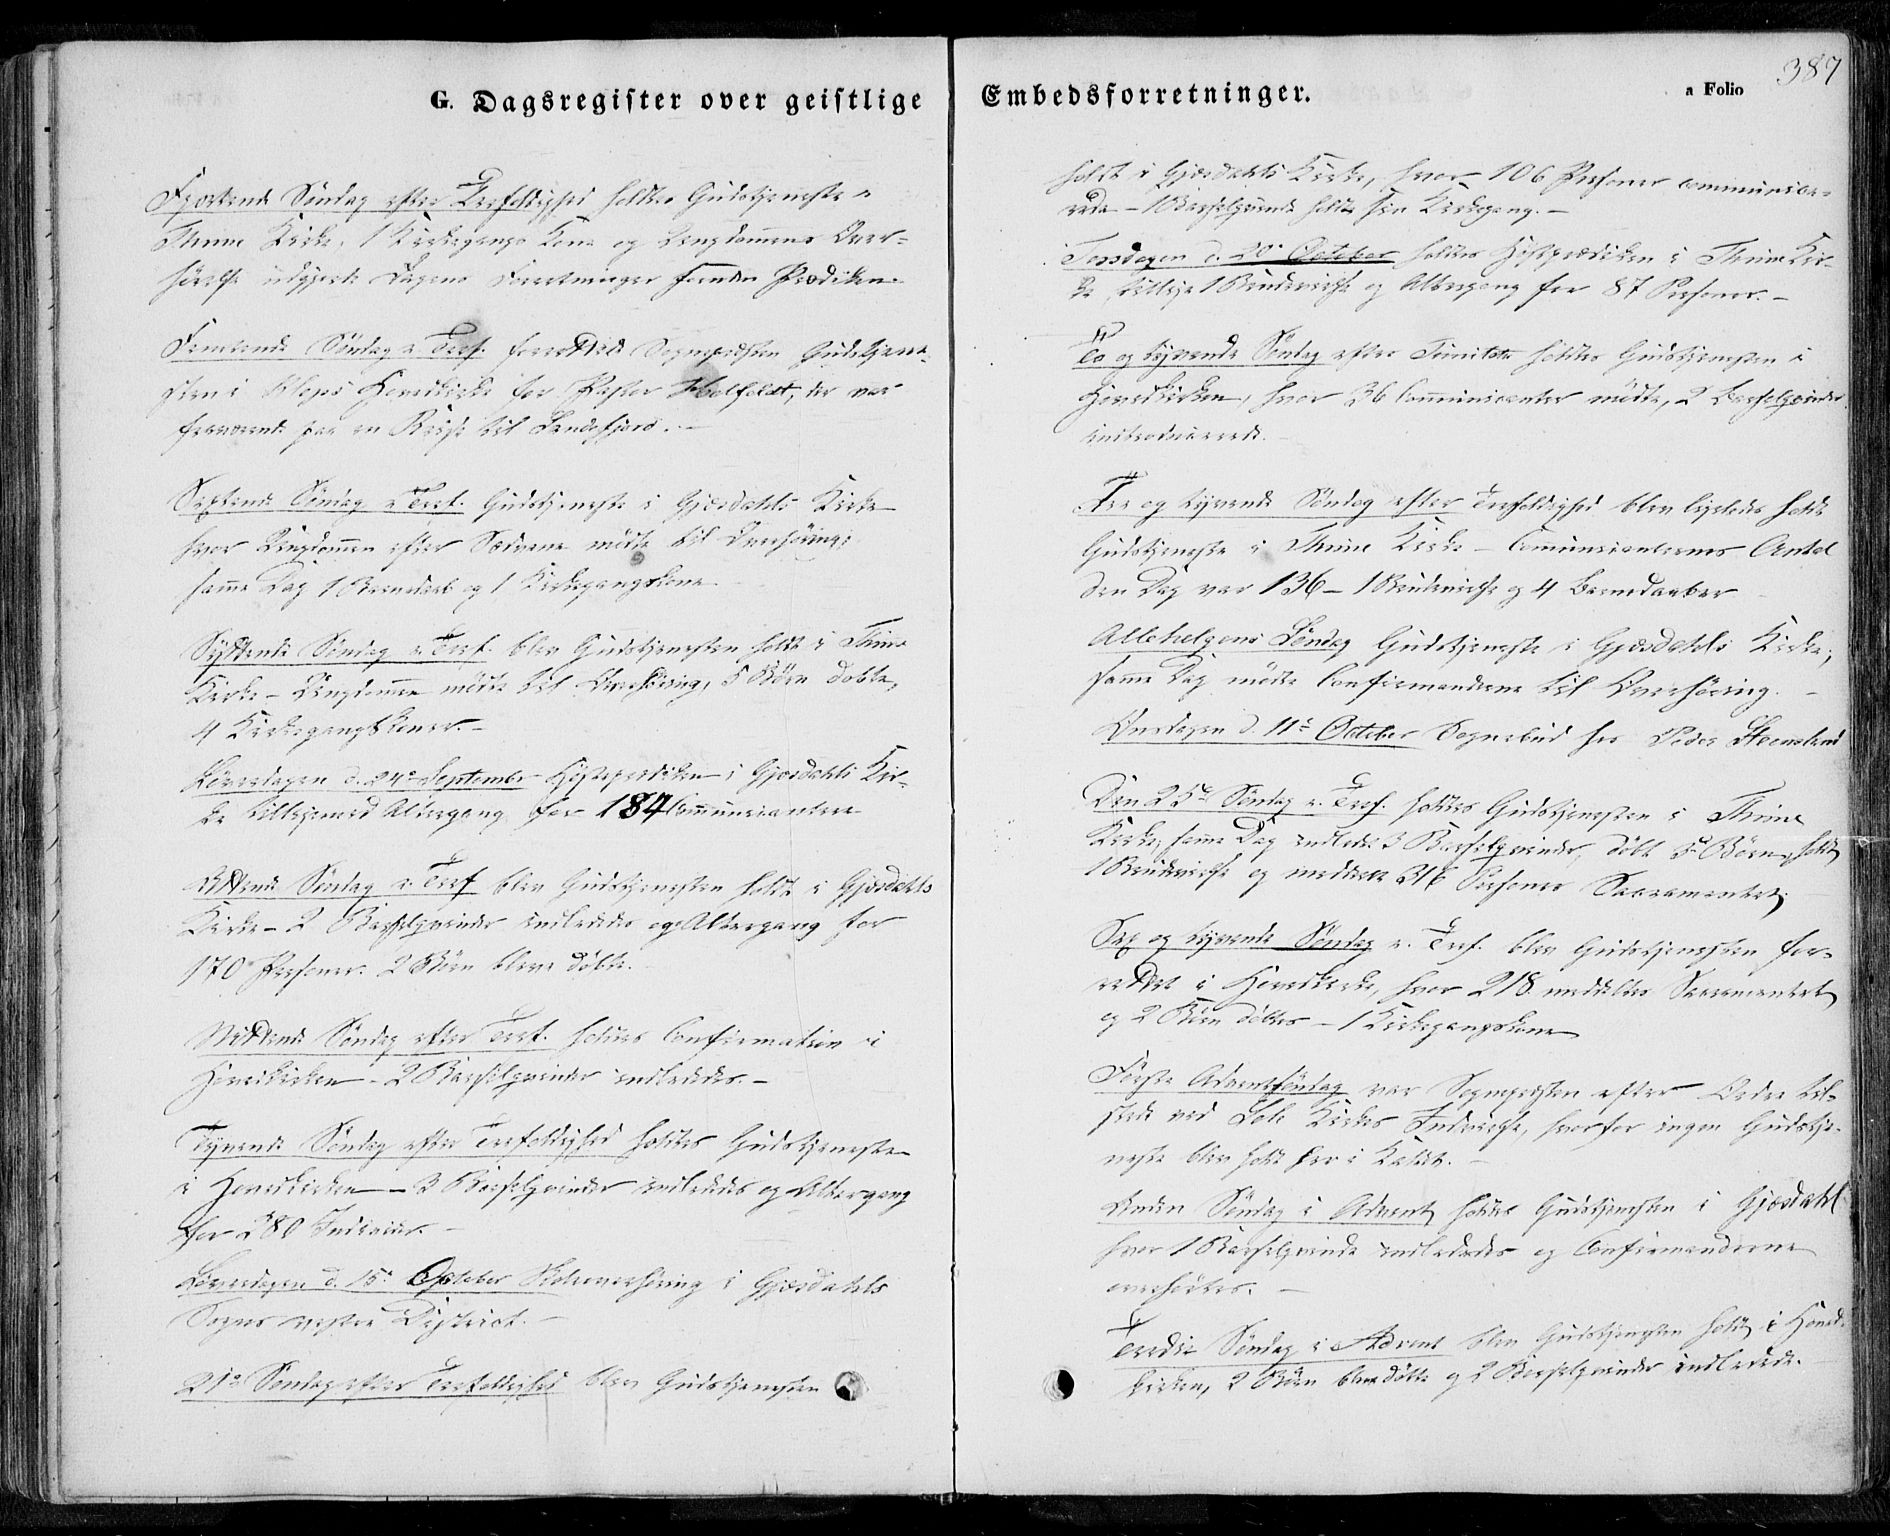 G. Dagsregister over geistlige
Fjortende Søndag efter Trefoldighed holdtes Gudstjeneste i
Thime Kirke, 1 Kirkegangs Kone og Ungdommens Over-
hørelse udgjorde Dagens Forretninger foruden Prædiken
Femtende Søndag e. Tref. forrettede Sognepræsten Gudstjene-
sten i Kleps Hovedkirke for Pastor, der var
fraværende paa en Reise til Sandefjord.-
Sextende Søndag e. Tref. Gudstjeneste i Gjæsdahls Kirke
hvor Ungdommen efter Sædvane mødte til Overhøring;
samme Dag 1 Barnedaab og 1 Kirkegangskone
Syttende Søndag e. Tref. blev Gudstjenesten holdt i Thime
Kirke - Ungdommen mødte til Overhøring, 5 Børn døbte,
4 Kirkegangskoner.-
Løverdagen d. 24de September Høstprædiken i Gjæsdahls Kir-
ke tilligemed Altergang for 184 Communicantere
Attende Søndag e. Tref blev Gudstjenesten holdt i Gjæsdahls
Kirke - 2 Barselqvinder indlededes og Altergang for
170 Personer. 2 Børn bleve døbte.
Nittende Søndag efter Tref. holdtes Confirmation i
Hovedkirken - 2 Barselqvinder indlededes.-
Tyvende Søndag efter Trefoldighed holdtes Gudstjeneste
i Hovedkirken - 3 Barselqvinder indlededes og Altergang
for 280 Individer.-
Løverdagen d. 15de October Skoleoverhøring i Gjæsdahls
Sogns vestre District.-
21de Søndag efter Trefoldighed blev Gudstjenesten
Embedsforretninger.
a Folio
387
holdt i Gjæsdahls Kirke, hvor 106 Personer communice-
rede - 1 Barselqvinde holdt sin Kirkegang.-
Torsdagen d. 20de October holdtes Høstprædiken i Thime Kir-
ke, tillige 1 Brudevielse og Altergang for 87 Personer.-
To og tyvende Søndag efter Trinitatis holdtes Gudstjenesten i
Hovedkirken, hvor 36 Communicanter mødte, 2 Barselqvinder
introducerede.
Tre og tyvende Søndag efter Trefoldighed blev ligeledes holdt
Gudstjeneste i Thime Kirke - Communicanternes Antal
den Dag var 136 - 1 Brudevielse og 4 Barnedaaber
Allehelgens Søndag Gudstjeneste i Gjæsdahls Kirke;
samme Dag mødte Confirmanderne til Overhøring.-
Onsdagen d. 11te October Sognebud hos Peder
Den 25de Søndag e. Tref. holdtes Gudstjenesten i Thime
Kirke, samme Dag indledet 3 Barselqvinder, døbt 5 Børn, holdt
1 Brudevielse og meddeelt 216 Personer Sacramentet.
Sex og tyvende Søndag e. Tref. blev Gudstjenesten for-
rettet i Hovedkirke, hvor 218 meddeltes Sacramentet
og 2 Børn døbtes - 1 Kirkegangskone
Første Adventssøndag var Sognepræsten efter Ordre til-
stede ved Sole Kirkes Indvielse, hvorfor ingen Gudstje-
neste blev holdt her i Kaldet.-
Anden Søndag i Advent holdtes Gudstjenesten i Gjæsdahl
hvor 1 Barselqvinde indlededes og Confirmanderne
overhørtes.-
Tredie Søndag i Advent blev Gudstjenesten holdt i Hoved-
kirken, 2 Børn bleve døbte og 2 Barselqvinder indledede.